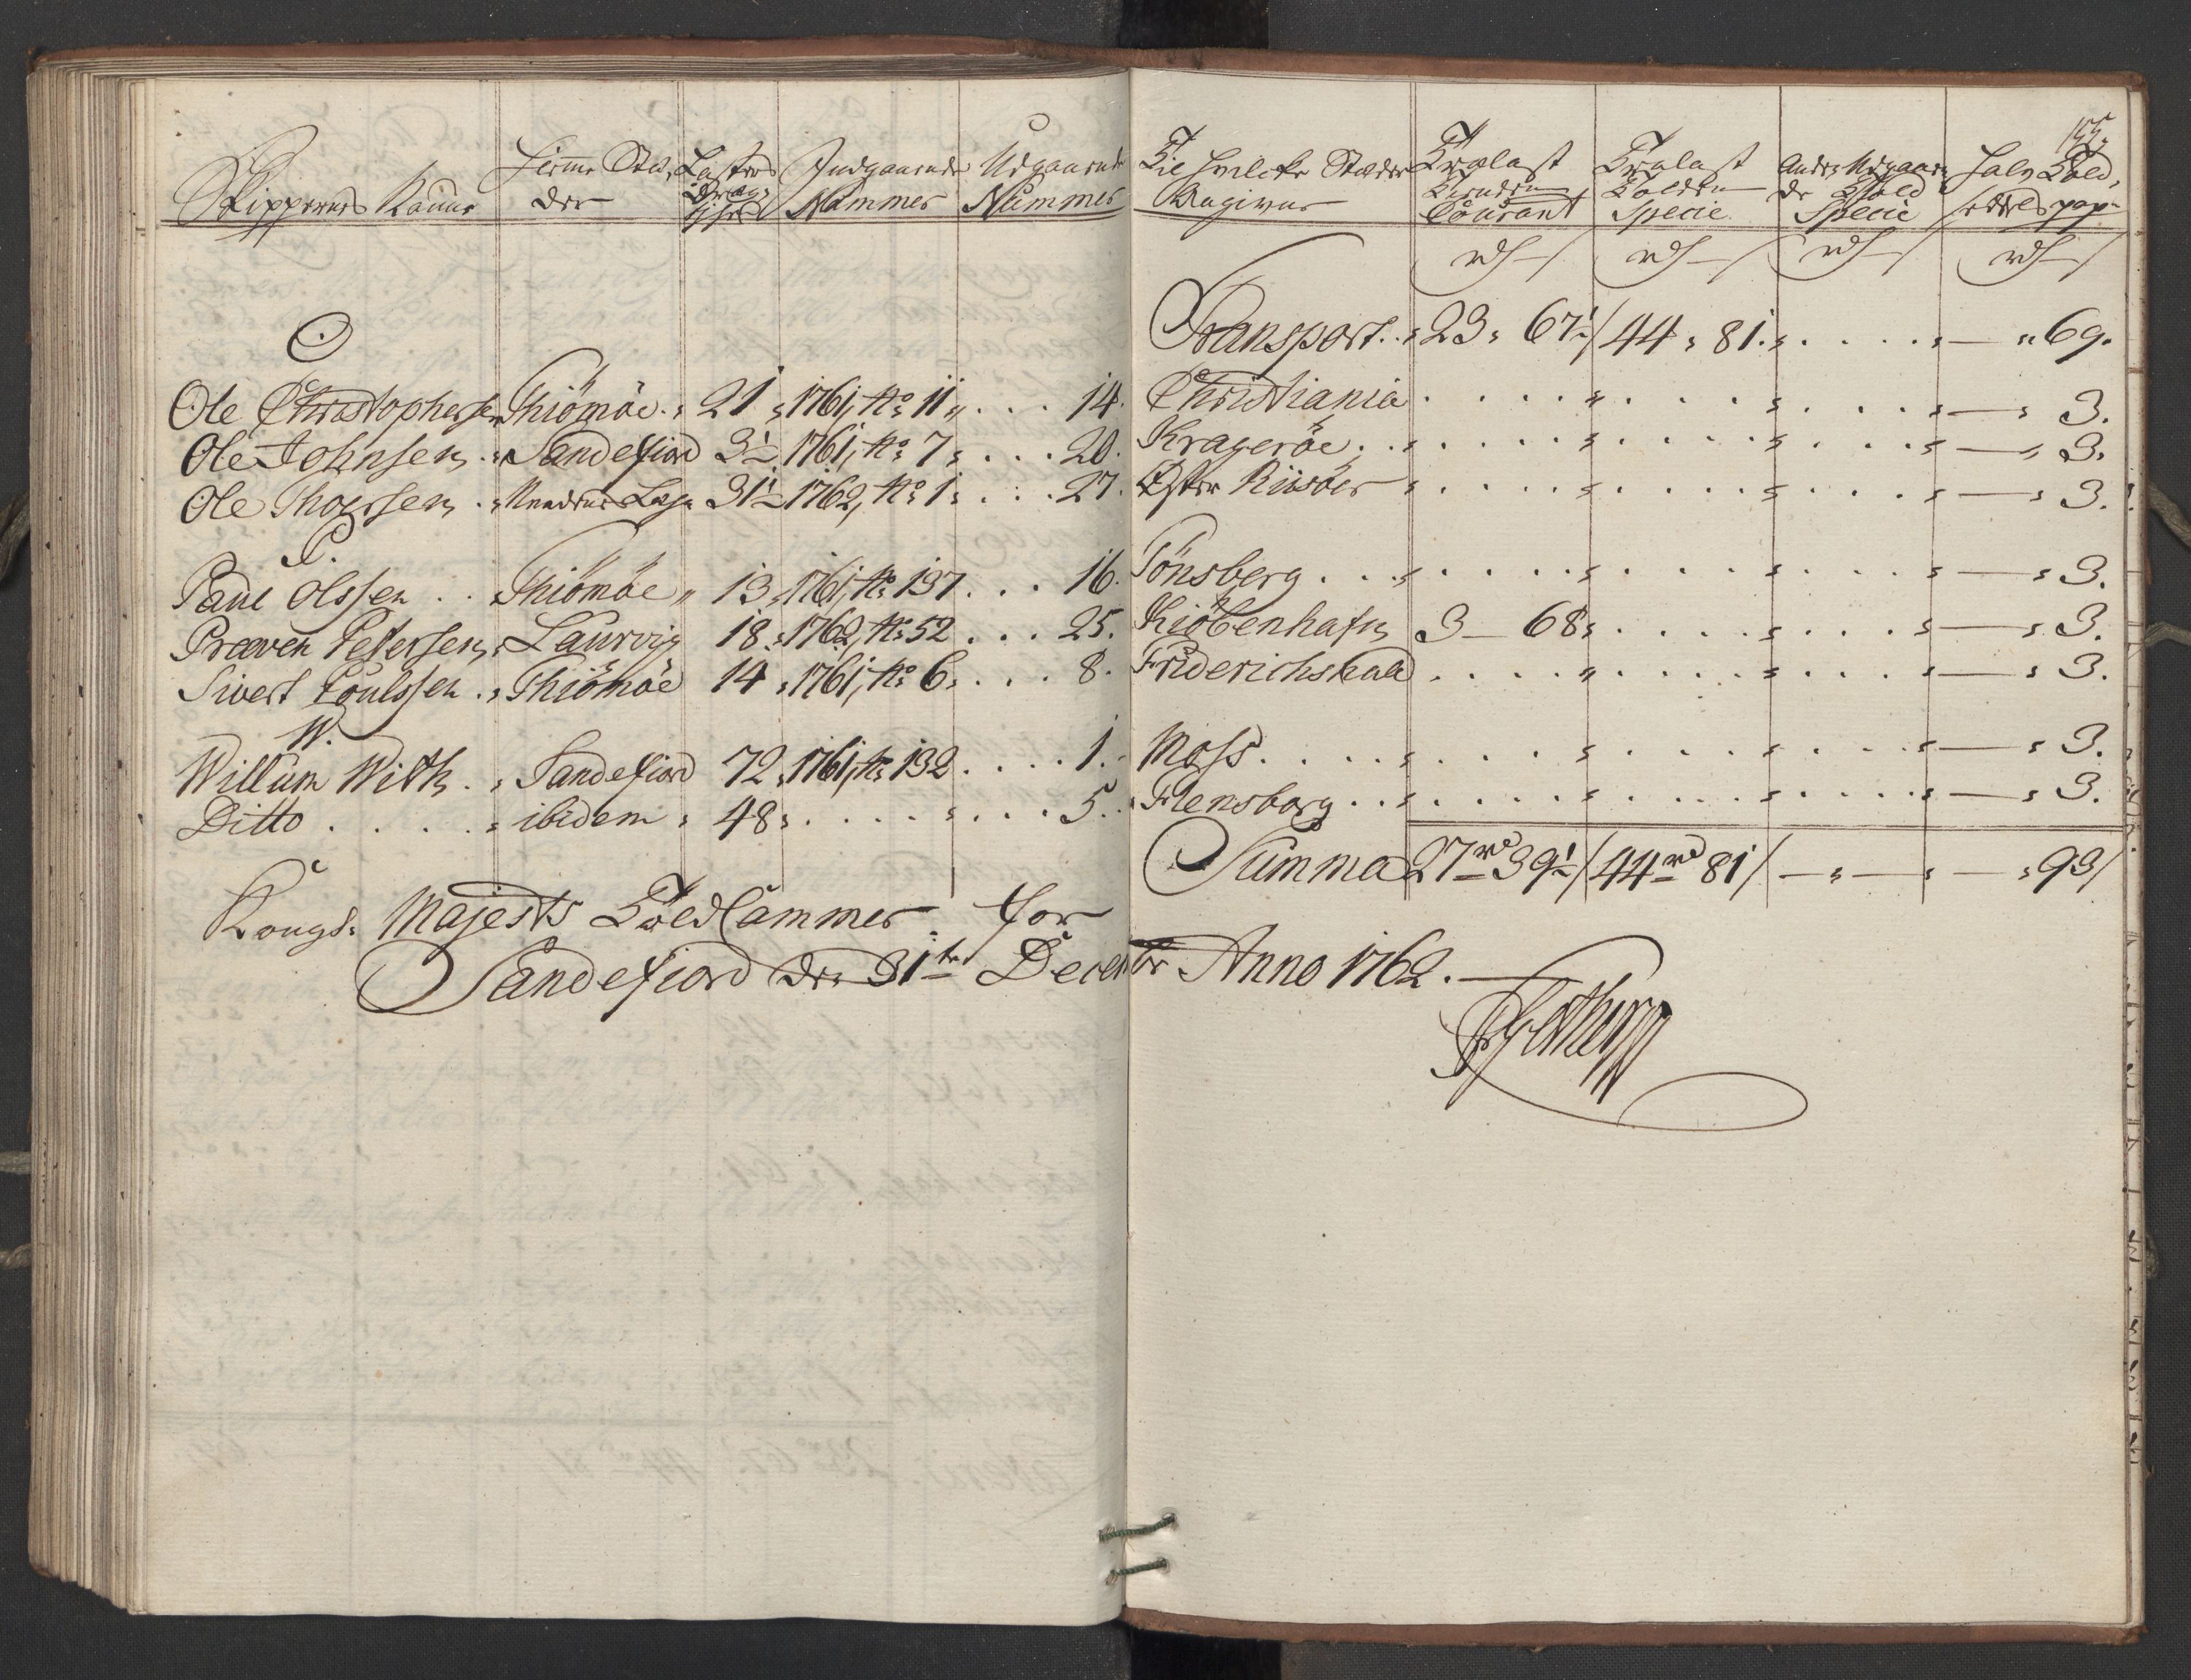 155.
Skippernes Nafne | Hiemme Stæder | Læsters Drægtighed | Indgaaende Nummer | Udgaaende Nummer | Til hvilcke Stæder Angivne | Trælast Tienden Courant | Trælast Tolden Specie | Andre Udgaaende Told Specie | Halv Told
rd - / | rd - / | rd - / | rd - /
Transport. 23 " 67½/ 44 " 81. " — " 69.
O
Ole Christophersen Thiömöe 21 " 1761, No 11 " 14. Christiania " — " 3.
Ole Johnsen Sandefiord 3½ 1761, No 7 " 20. Krageröe " — " 3.
Ole Thoersen 31½ 1762, No 1 " 27. Öster Riisöer " — " 3.
P.
Paul Olssen Thiömöe " 13 " 1761, No 137 16. Tönsberg " — " 3.
Præven Petersen Laurvig 18 " 1762, No 52 25. Kiöbenhafn 3 — 68 " — " 3.
Sivert Poulssen Thiömöe 14 " 1761, No 6 " 8. Friderichshald " — " 3.
W.
Willum With Sandefiord 72 " 1761, No 132 1. Moss " — " 3.
Ditto ibidem " 48 " 5. Flensborg " — " 3.
Summa 27 rd 39½/ 44 rd 81/ — " — " — " 93/
Kongl: Majests Told Cammer for
Sandefiord den 31te Decembr Anno 1762.